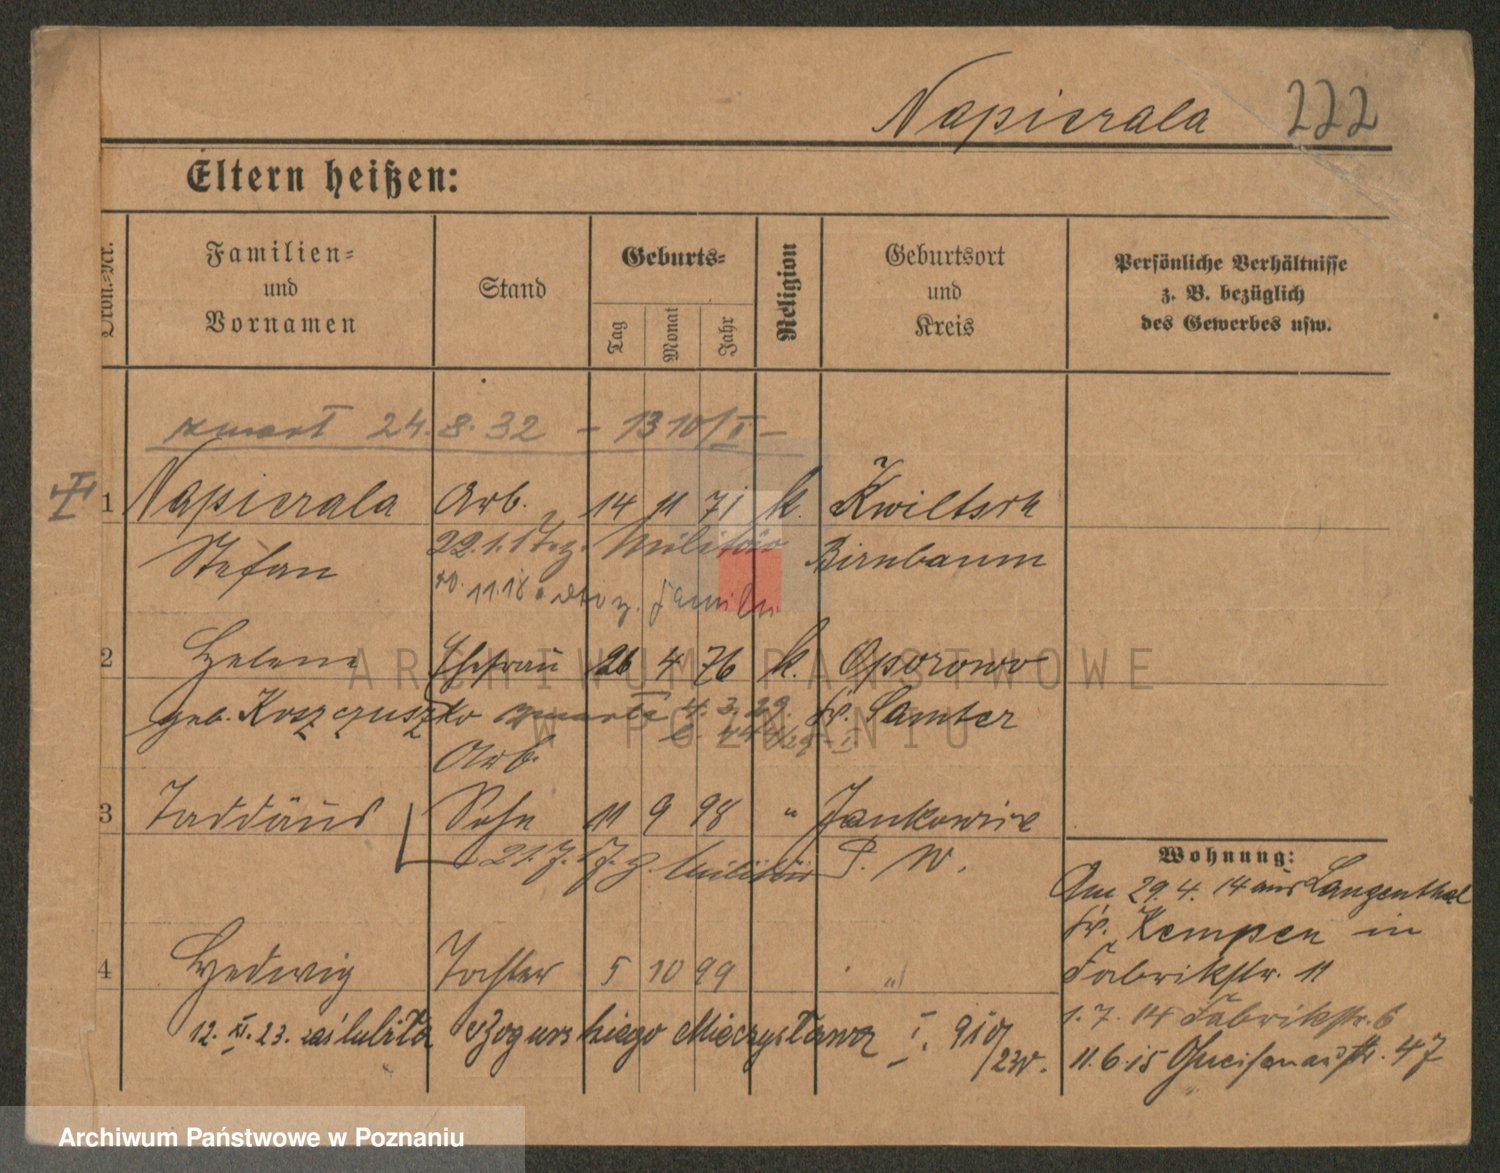 Napierala 222
Eltern heißen:
Ordn.-Nr.
Familien- und Vornamen
Stand
Geburts-
Tag
Monat
Jahr
Religion
Geburtsort und Kreis
Persönliche Verhältnisse z. B. bezüglich des Gewerbes usw.
zmarł 24.8.32 - 1310/I -
1 Napierala Arb. 14 11 71 k. Kwiltsch
Stefan 22.1.17 z. Militär Birnbaum
11.18 z. Familie
2 Helene Ehefrau 26 4 76 k. Oporowo
geb. Koszczuszko zmarła 4.3.29. Kr. Samter
Arb.
3 Taddäus Sohn 11 9 98 " Jankowice
21.7.17. z. Militär P. W.
Wohnung:
Am 29.4.14 aus Langenthal
Kr. Kempen in
4 Hedwig Tochter 5 10 99 "
Fabrikstr. 11
12.XI.23. zaślubiła Mieczysława I. 910/23r.
1.7.14 Fabrikstr. 6
11.6.15 Gneisenaustr. 47
ARCHIWUM PAŃSTWOWE
W POZNANIU
Archiwum Państwowe w Poznaniu